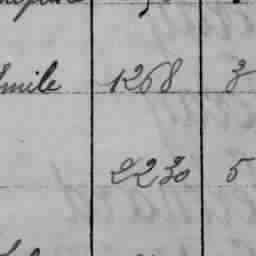 Emile 1268 3
2230 5